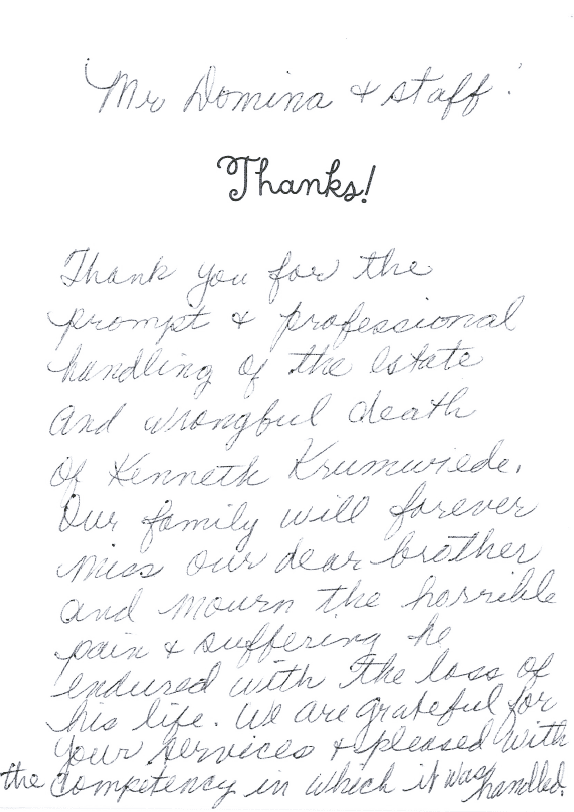 Mr Domina & staff:
Thanks!
Thank you for the
prompt & professional
handling of the estate
and wrongful death
of Kenneth Krumwiede.
Our family will forever
miss our dear brother
and mourn the horrible
pain & suffering he
endured with the loss of
his life. We are grateful for
your services & pleased with
the competency in which it was handled.